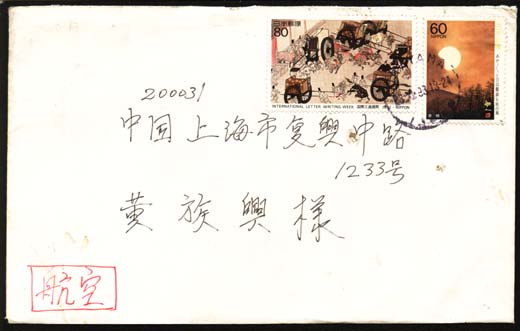 日本郵便
80
INTERNATIONAL LETTER WRITING WEEK 国際文通週間 NIPPON
60
NIPPON
200031
中国上海市复興中路
1233号
黄族興様
航空